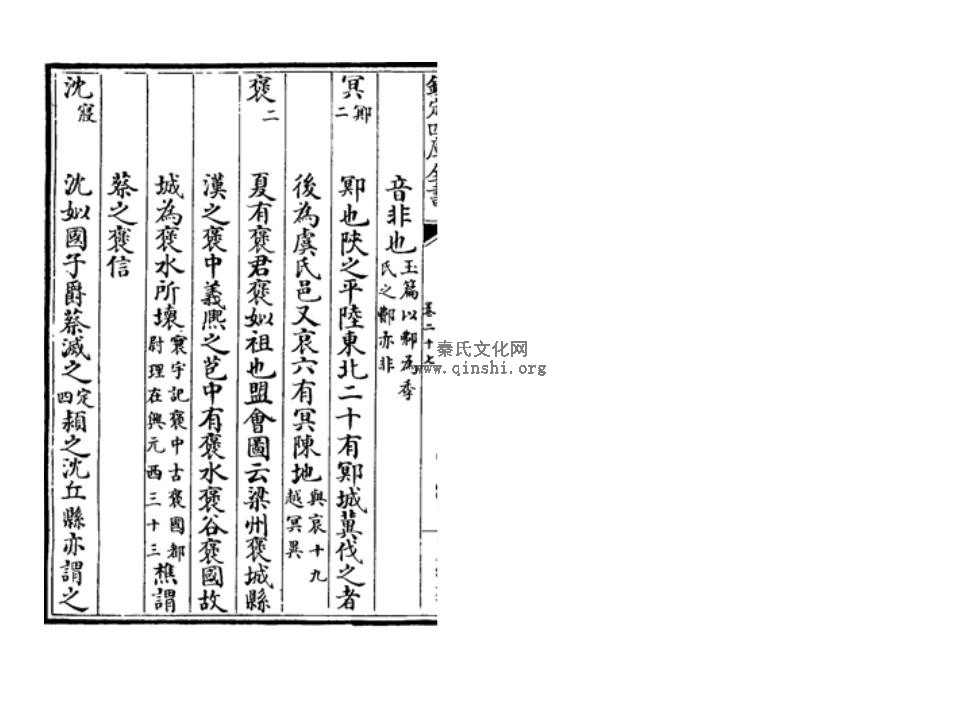 欽定四庫全書
卷二十七
音非也玉篇以鄸為季氏之鄸亦非
冥鄍二 鄍也陜之平陸東北二十有鄍城冀伐之者
後為虞氏邑又哀六有冥陳地與哀十九越冥異
褒二 夏有褒君褒姒祖也盟會圖云梁州褒城縣
漢之褒中義熙之苞中有褒水褒谷褒國故
城為褒水所壞寰宇記褒中古褒國都尉理在興元西三十三樵謂
蔡之褒信
沈寢 沈姒國子爵蔡滅之定四潁之沈丘縣亦謂之
秦氏文化网
www.qinshi.org